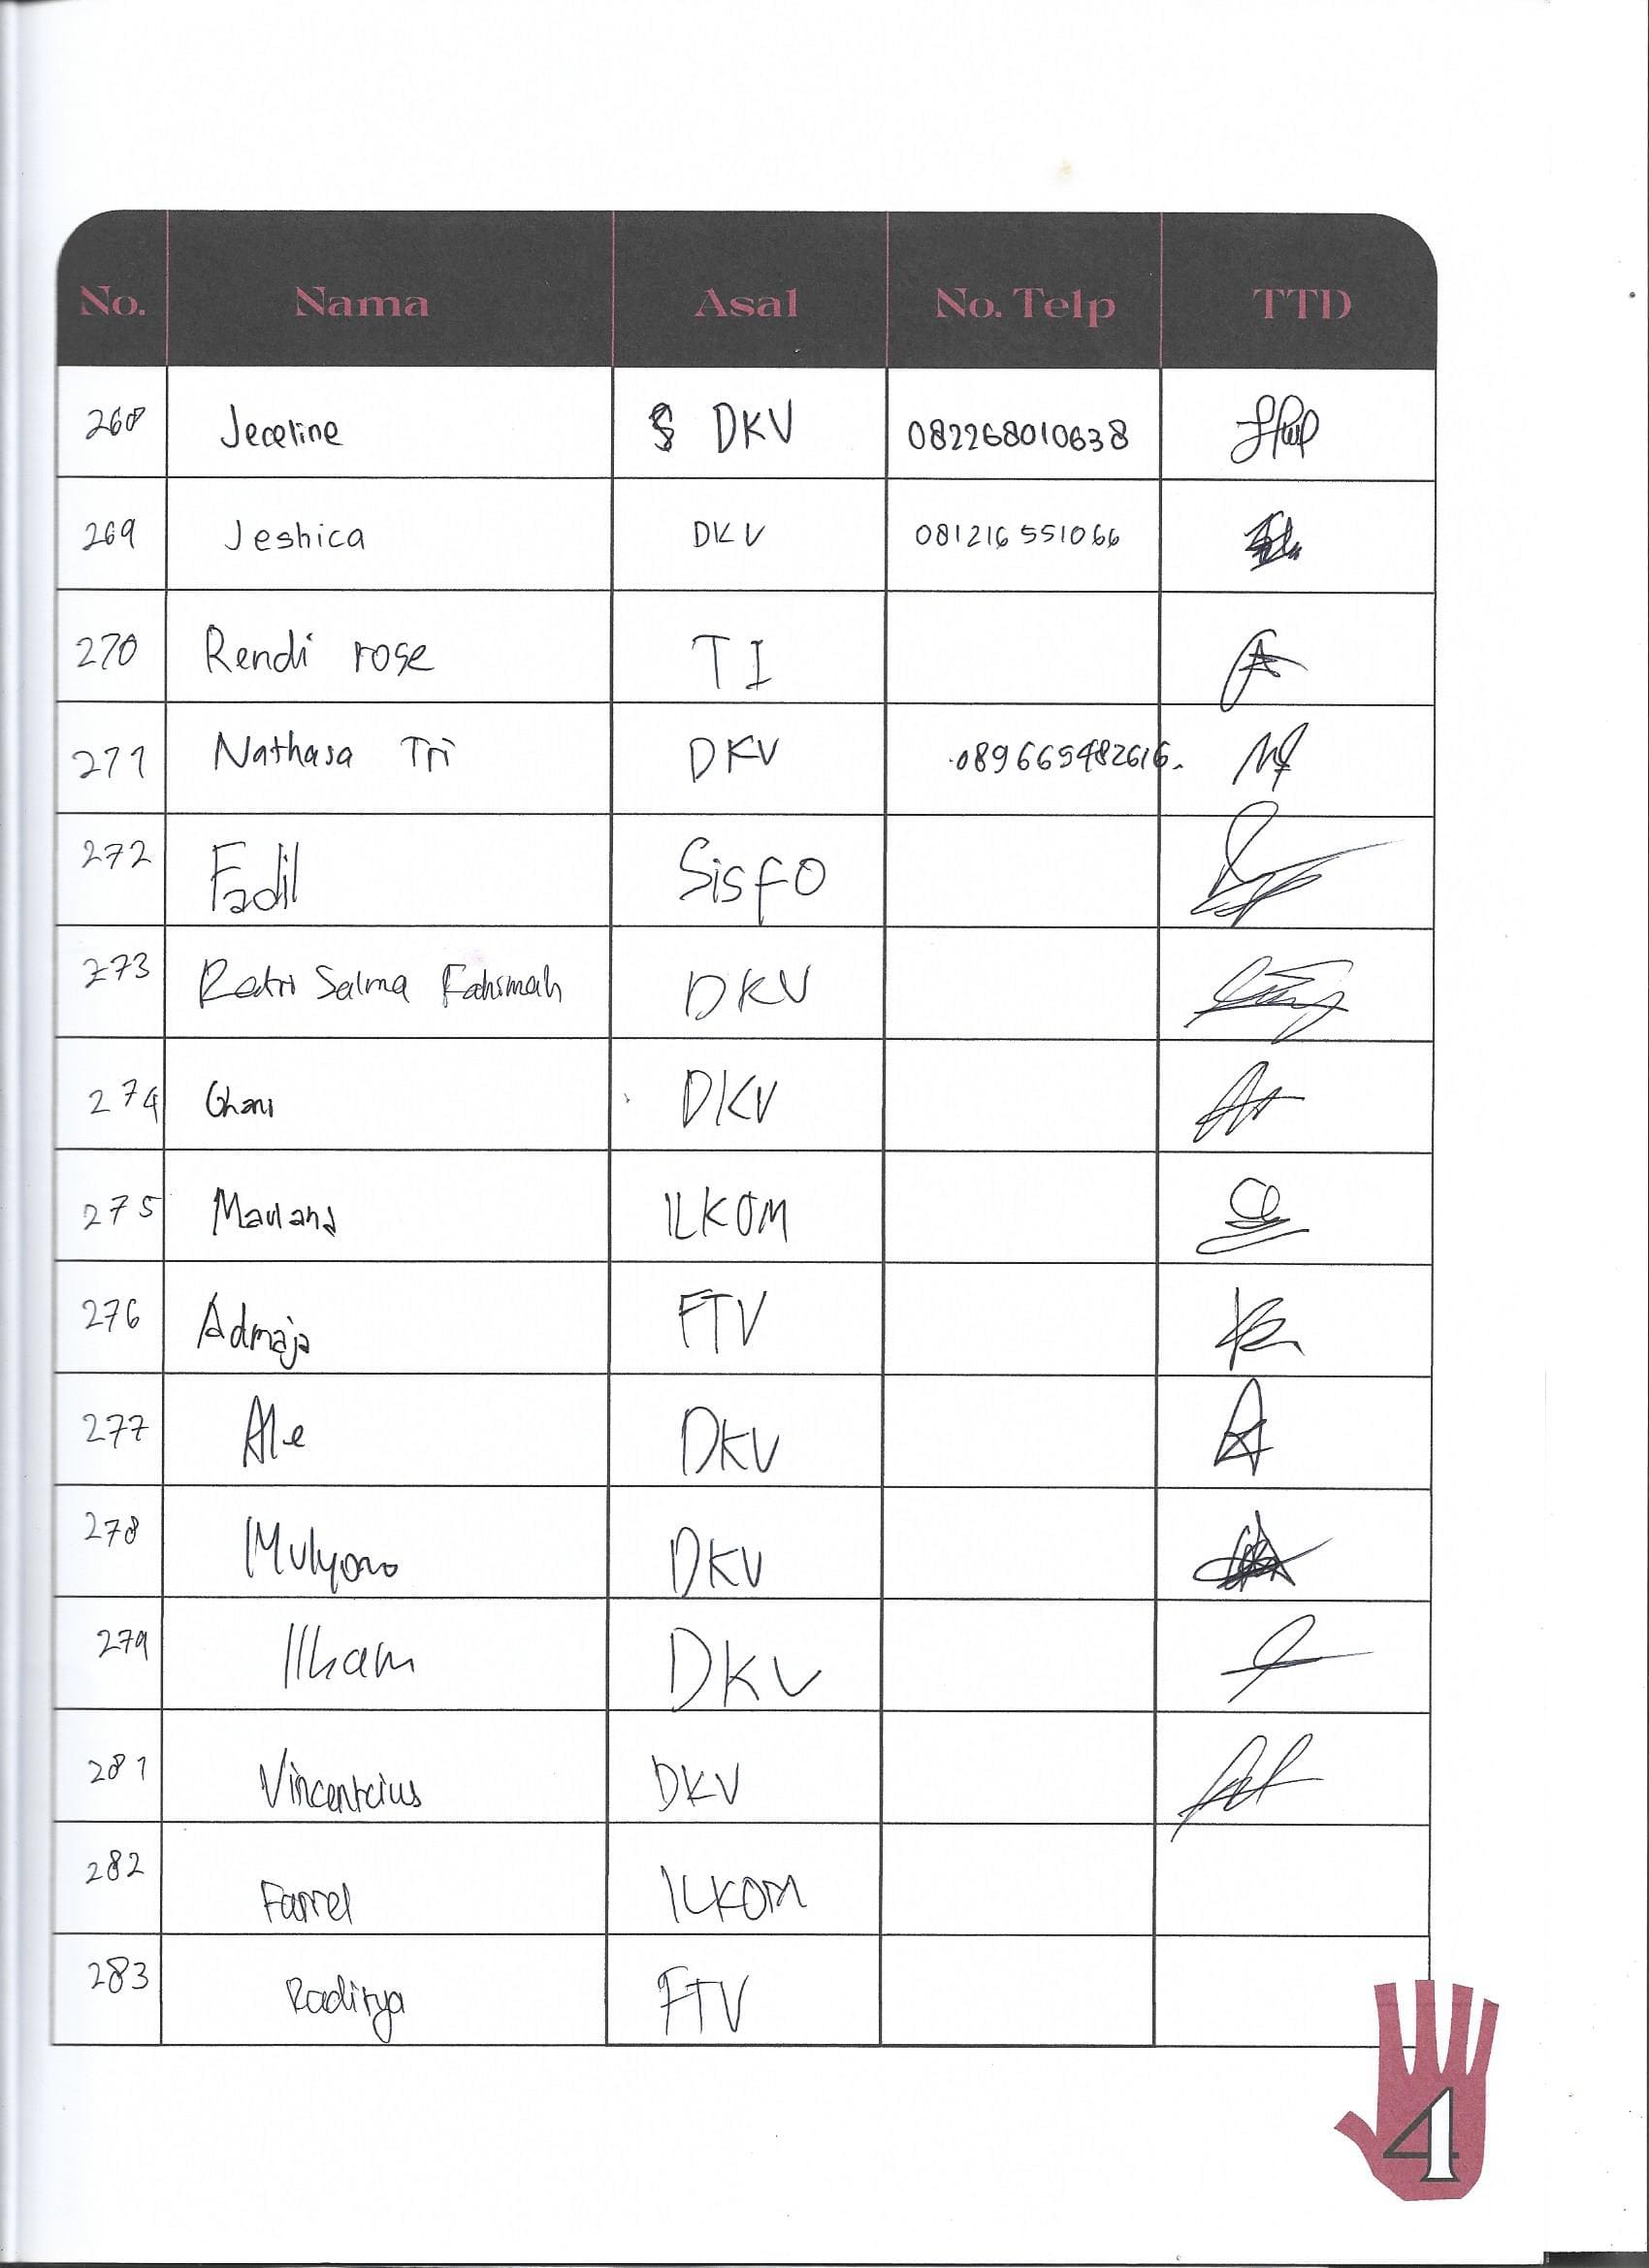 No. Nama Asal No. Telp TTD
268 Jeceline DKV 082268010638
269 Jeshica DKV 081216551066
270 Rendi rose TI
271 Nathasa Tri DKV 089665482616.
272 Fadil Sisfo
273 Retri Salma Fahsmah DKV
274 Ghani DKV
275 Mauland ILKOM
276 Admaja FTV
277 Ale DKV
278 Mulyono DKV
279 Ilham DKV
281 Vincentcius DKV
282 Farrel ILKOM
283 Raditya FTV
4